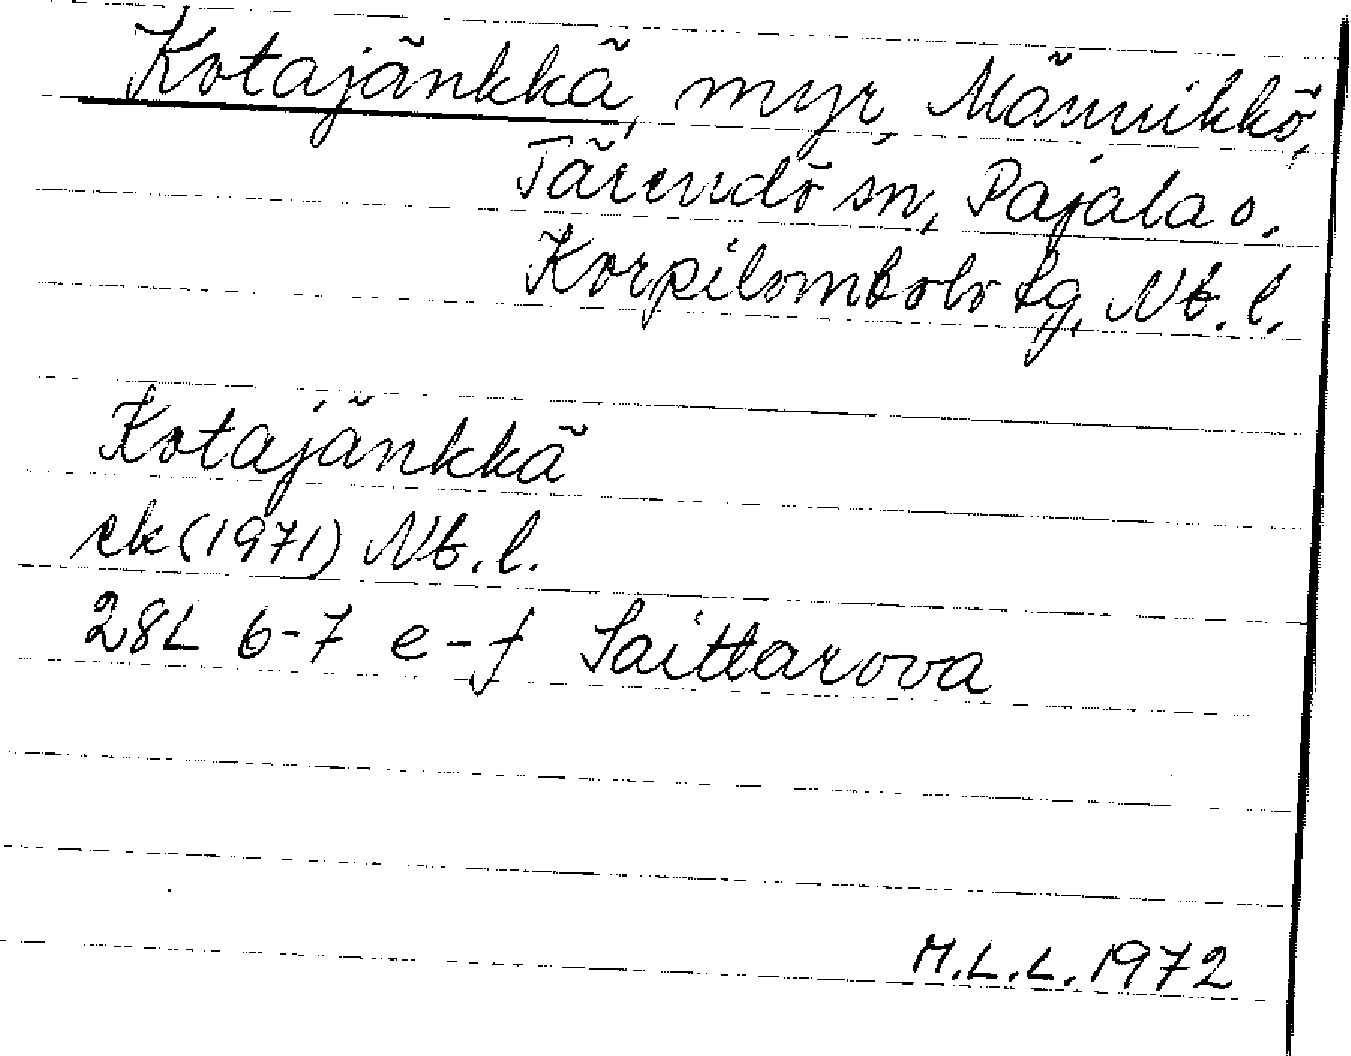 Kotajänkkä, myr, Männikkö,
Tärendö sn, Pajala o.
Korpilombolo tg, Nb. l.
Kotajänkkä
ek (1971) Nb. l.
28L 6-7 e-f Saittarova
M.L.L. 1972